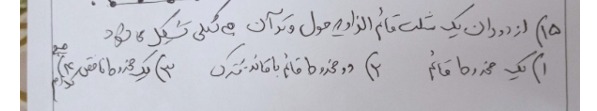 ۱۵) از دوران یک مثلث قائم الزاویه حول وتر آن چه شکلی تشکیل می شود
۱) یک مخروط قائم ۲) دو مخروط قائم با قاعده مشترک ۳) یک مخروط ناقص ۴) هیچ کدام